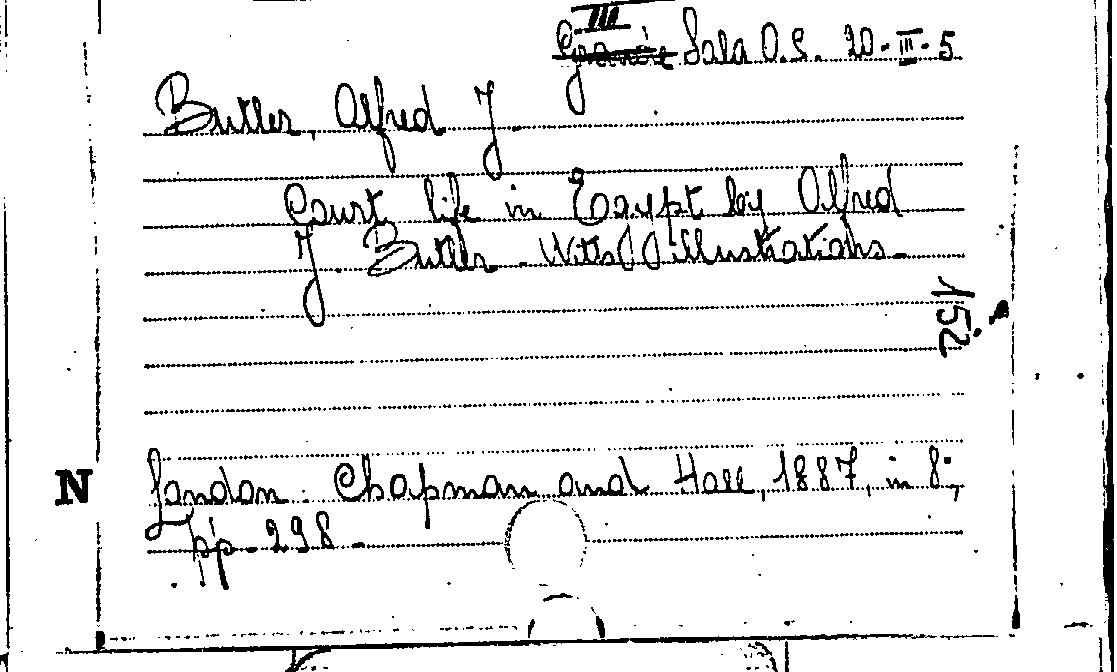 III
Sala O.S. 20-III-5
Butler, Alfred J.
Court life in Egypt by Alfred
J. Butler. With illustrations.
152
N
London. Chapman and Hall, 1887, in 8°,
pp. 298.